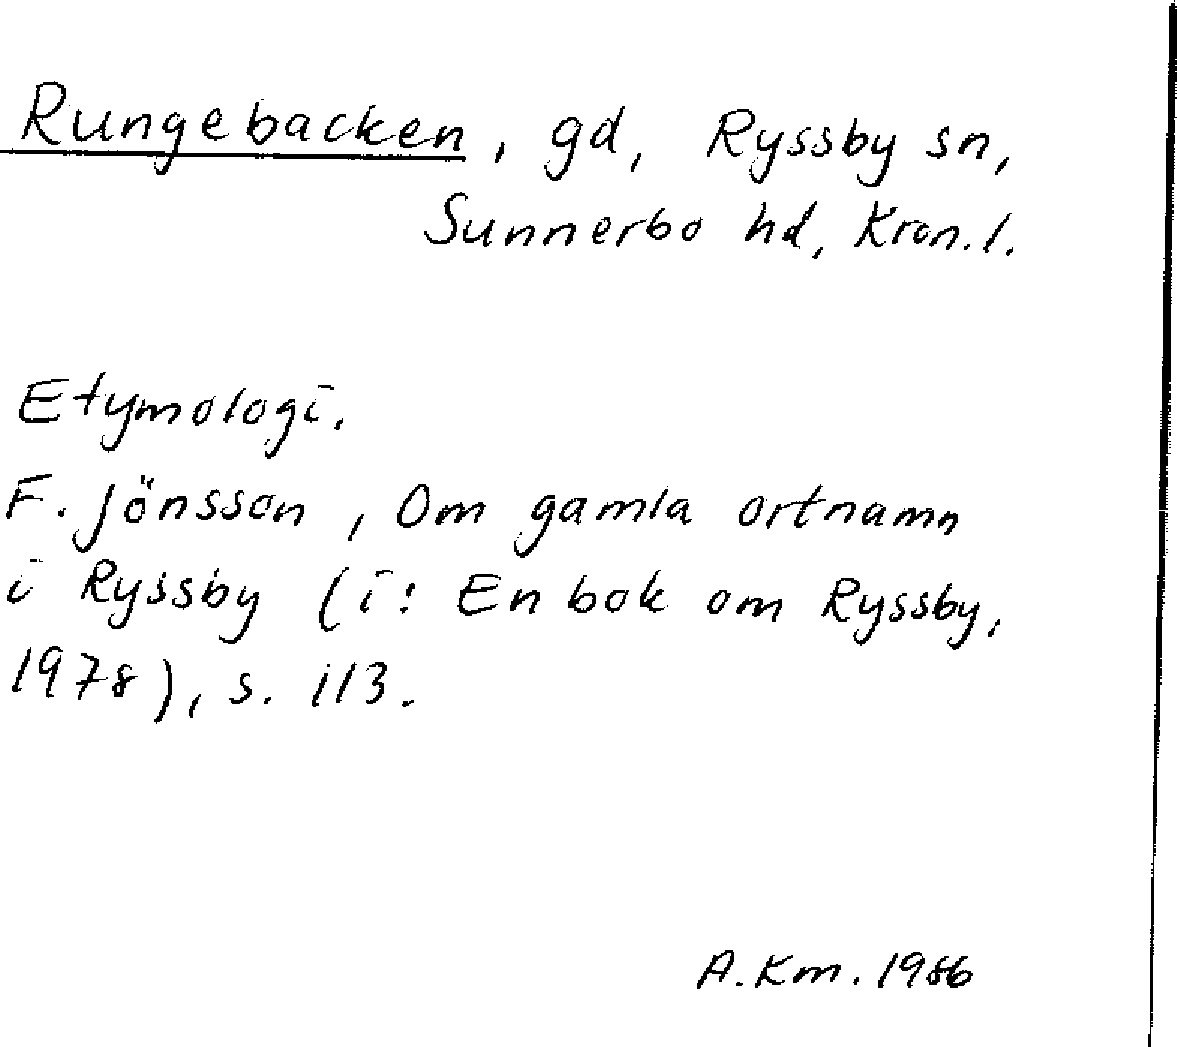 Rungebacken, gd, Ryssby sn,
Sunnerbo hd, Kron.l.
Etymologi.
F. Jönsson, Om gamla ortnamn
i Ryssby (i: En bok om Ryssby,
1978), s. 113.
A.Km. 1986